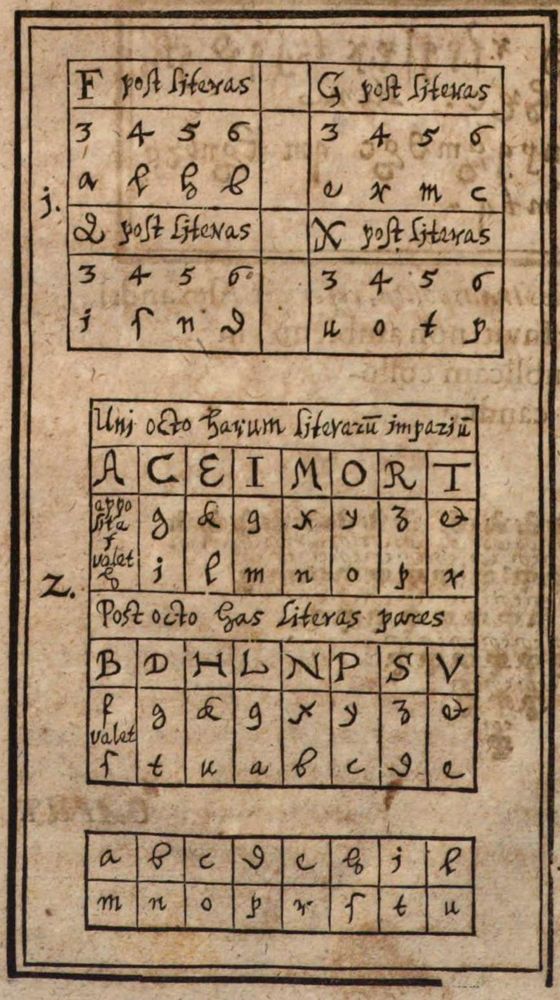 F post literas G post literas
3 4 5 6 3 4 5 6
a l h b e r m c
j.
Q post literas X post literas
3 4 5 6 3 4 5 6
i ſ n d u o t p
Uni octo harum literarū impariū
A C E I M O R T
appo
sita
f
valet
h
g & 9 x y z &
i l m n o p r
2.
Post octo has literas pares
B D H L N P S V
f
valet
ſ
g & 9 x y z &
t u a b c d e
a b c d e h i l
m n o p r ſ t u